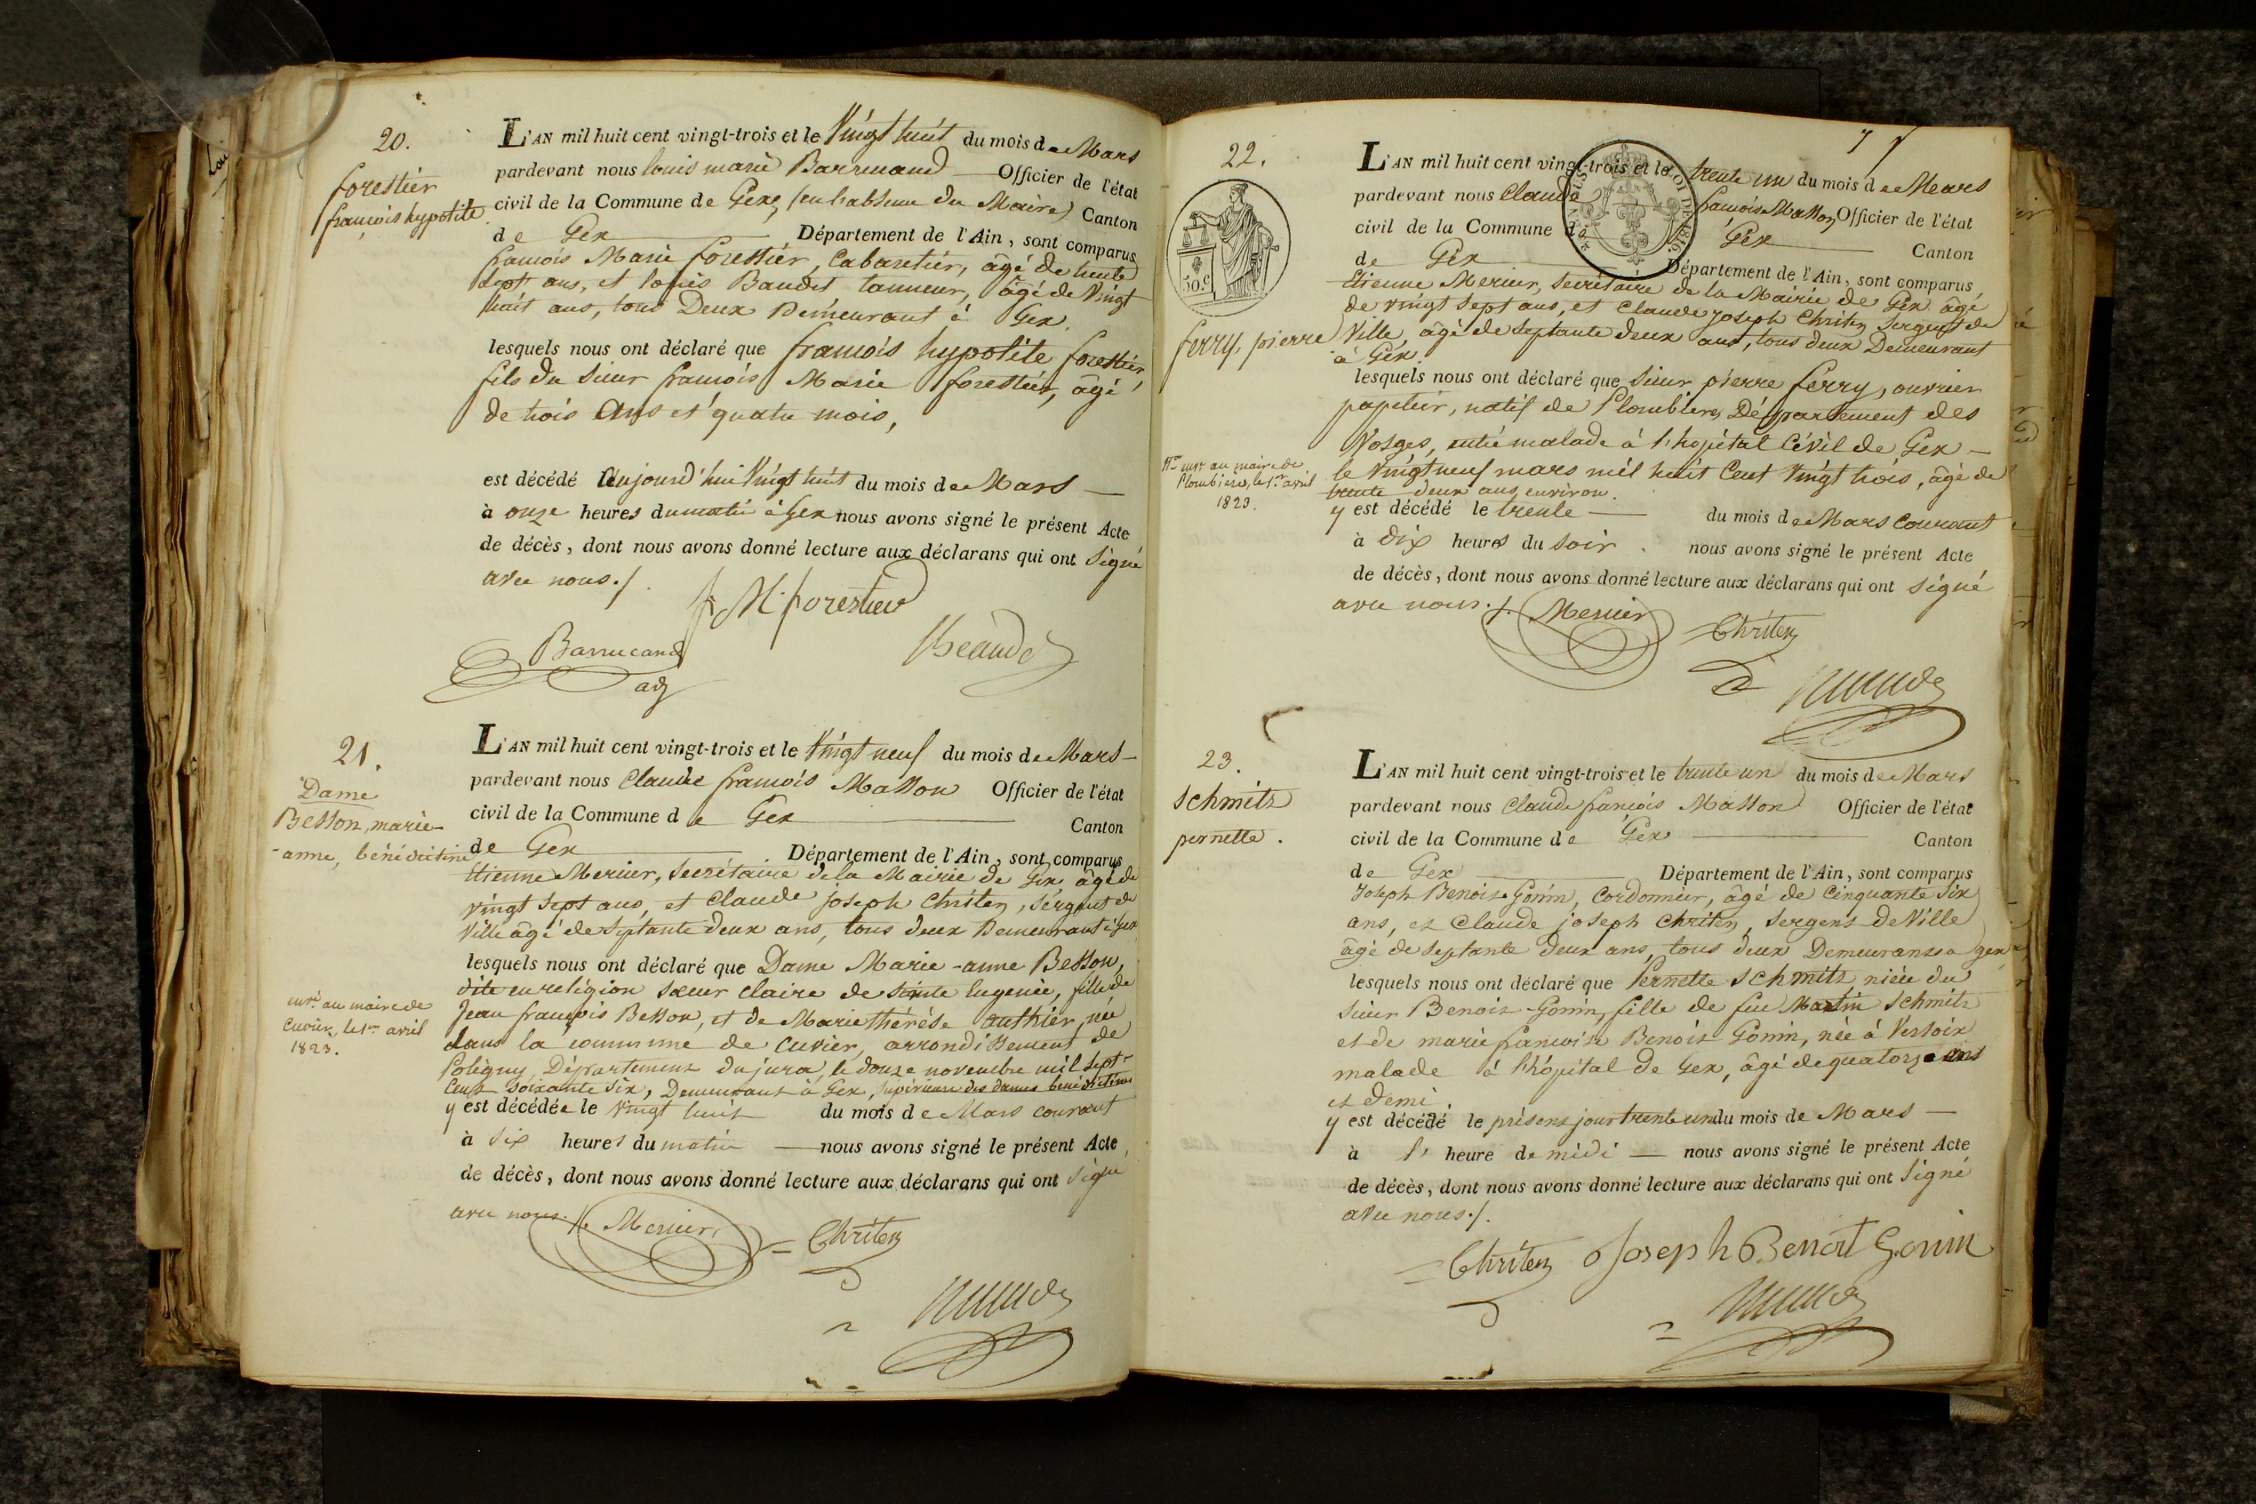 20.
forestier
françois hypolite
L'AN mil huit cent vingt-trois et le Vingt huit du mois de Mars
pardevant nous louis marie Barrucand Officier de l'état
civil de la Commune de Gex, (en l'absence du Maire) Canton
de Gex Département de l'Ain, sont comparus
françois Marie forestier, Cabaretier, âgé de trente
sept ans, et louis Baudet tanneur, âgé de Vingt
huit ans, tous Deux Demeurant à Gex.
lesquels nous ont déclaré que françois hypolite forestier
fils du sieur françois Marie forestier, âgé
de trois Ans et quatre mois,
est décédé Aujourd'hui Vingt huit du mois de Mars
à onze heures du matin à Gex nous avons signé le présent Acte
de décès, dont nous avons donné lecture aux déclarans qui ont Signé
avec nous./.
f. M. forestier
Barrucand
adj
21.
Dame
Besson, marie
-anne, bénédictine
L'AN mil huit cent vingt-trois et le Vingt neuf du mois de Mars
pardevant nous Claude françois Masson Officier de l'état
civil de la Commune de Gex Canton
de Gex Département de l'Ain, sont comparus
Etienne Mercier, Secrétaire de la Mairie de Gex, âgé de
vingt sept ans, et Claude joseph Chriten, sergent de
Ville âgé de septante deux ans, tous deux Demeurant à Gex
lesquels nous ont déclaré que Dame Marie-anne Besson,
dite en religion sœur Claire de Sainte Eugenie, fille de
Jean françois Besson, et de Marie thérèse authier, née
dans la commune de Cuvier, arrondissement de
Poligny, Département du jura, le douze novembre mil sept
Cent soixante six, Demeurant à Gex, supérieure des dames bénédictines
y est décédée le vingt huit du mois de Mars courant
à six heures du matin nous avons signé le présent Acte
de décès, dont nous avons donné lecture aux déclarans qui ont signé
avec nous./.
au maire de
Cuvier, le 1er avril
1823.
Mercier
Chriten
22.
50.c
ferry, pierre
L'AN mil huit cent vingt-trois et le trente un du mois de Mars
pardevant nous Claude françois Masson, Officier de l'état
civil de la Commune de Gex Canton
de Gex Département de l'Ain, sont comparus
Etienne Mercier, Secrétaire de la Mairie de Gex âgé
de vingt sept ans, et Claude joseph Chriten Sergent de
Ville, âgé de septante deux ans, tous deux Demeurant
à Gex.
lesquels nous ont déclaré que sieur pierre ferry, ouvrier
papetier, natif de Plombieres, Département des
Vosges, entré malade à l'hopital Civil de Gex
le Vingt neuf mars mil huit Cent Vingt trois, âgé de
trente deux ans environ.
y est décédé le trente du mois de Mars Courant
à dix heures du soir. nous avons signé le présent Acte
de décès, dont nous avons donné lecture aux déclarans qui ont signé
avec nous./.
au maire de
Plombières, le 1er avril
1823.
Mercier
Chriten
23.
schmitz
pernette.
L'AN mil huit cent vingt-trois et le trente un du mois de Mars
pardevant nous Claude françois Masson Officier de l'état
civil de la Commune de Gex Canton
de Gex Département de l'Ain, sont comparus
Joseph Benoit Gonin, Cordonnier, âgé de Cinquante Six
ans, et Claude joseph Chriten, Sergent de Ville
âgé de septante deux ans, tous deux Demeurans a gex
lesquels nous ont déclaré que Pernette schmitz, niéce du
sieur Benoit-Gonin, fille de feu Martin schmitz
et de marie francoise Benoit Gonin, née à Versoix
malade à l'hôpital de Gex, âgé de quatorze ans
et demi.
y est décédé le présent jour trente un du mois de Mars
à l' heure de midi nous avons signé le présent Acte
de décès, dont nous avons donné lecture aux déclarans qui ont Signé
avec nous./.
Chriten Joseph Benoît Gonin